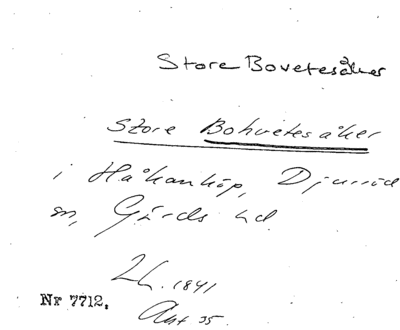 Store Bovetesåker
Store Bohvetesåker
i Håkanköp, Djurröd
sn, Gärds hd
Lh. 1841
Nr 7712.
Akt 35.